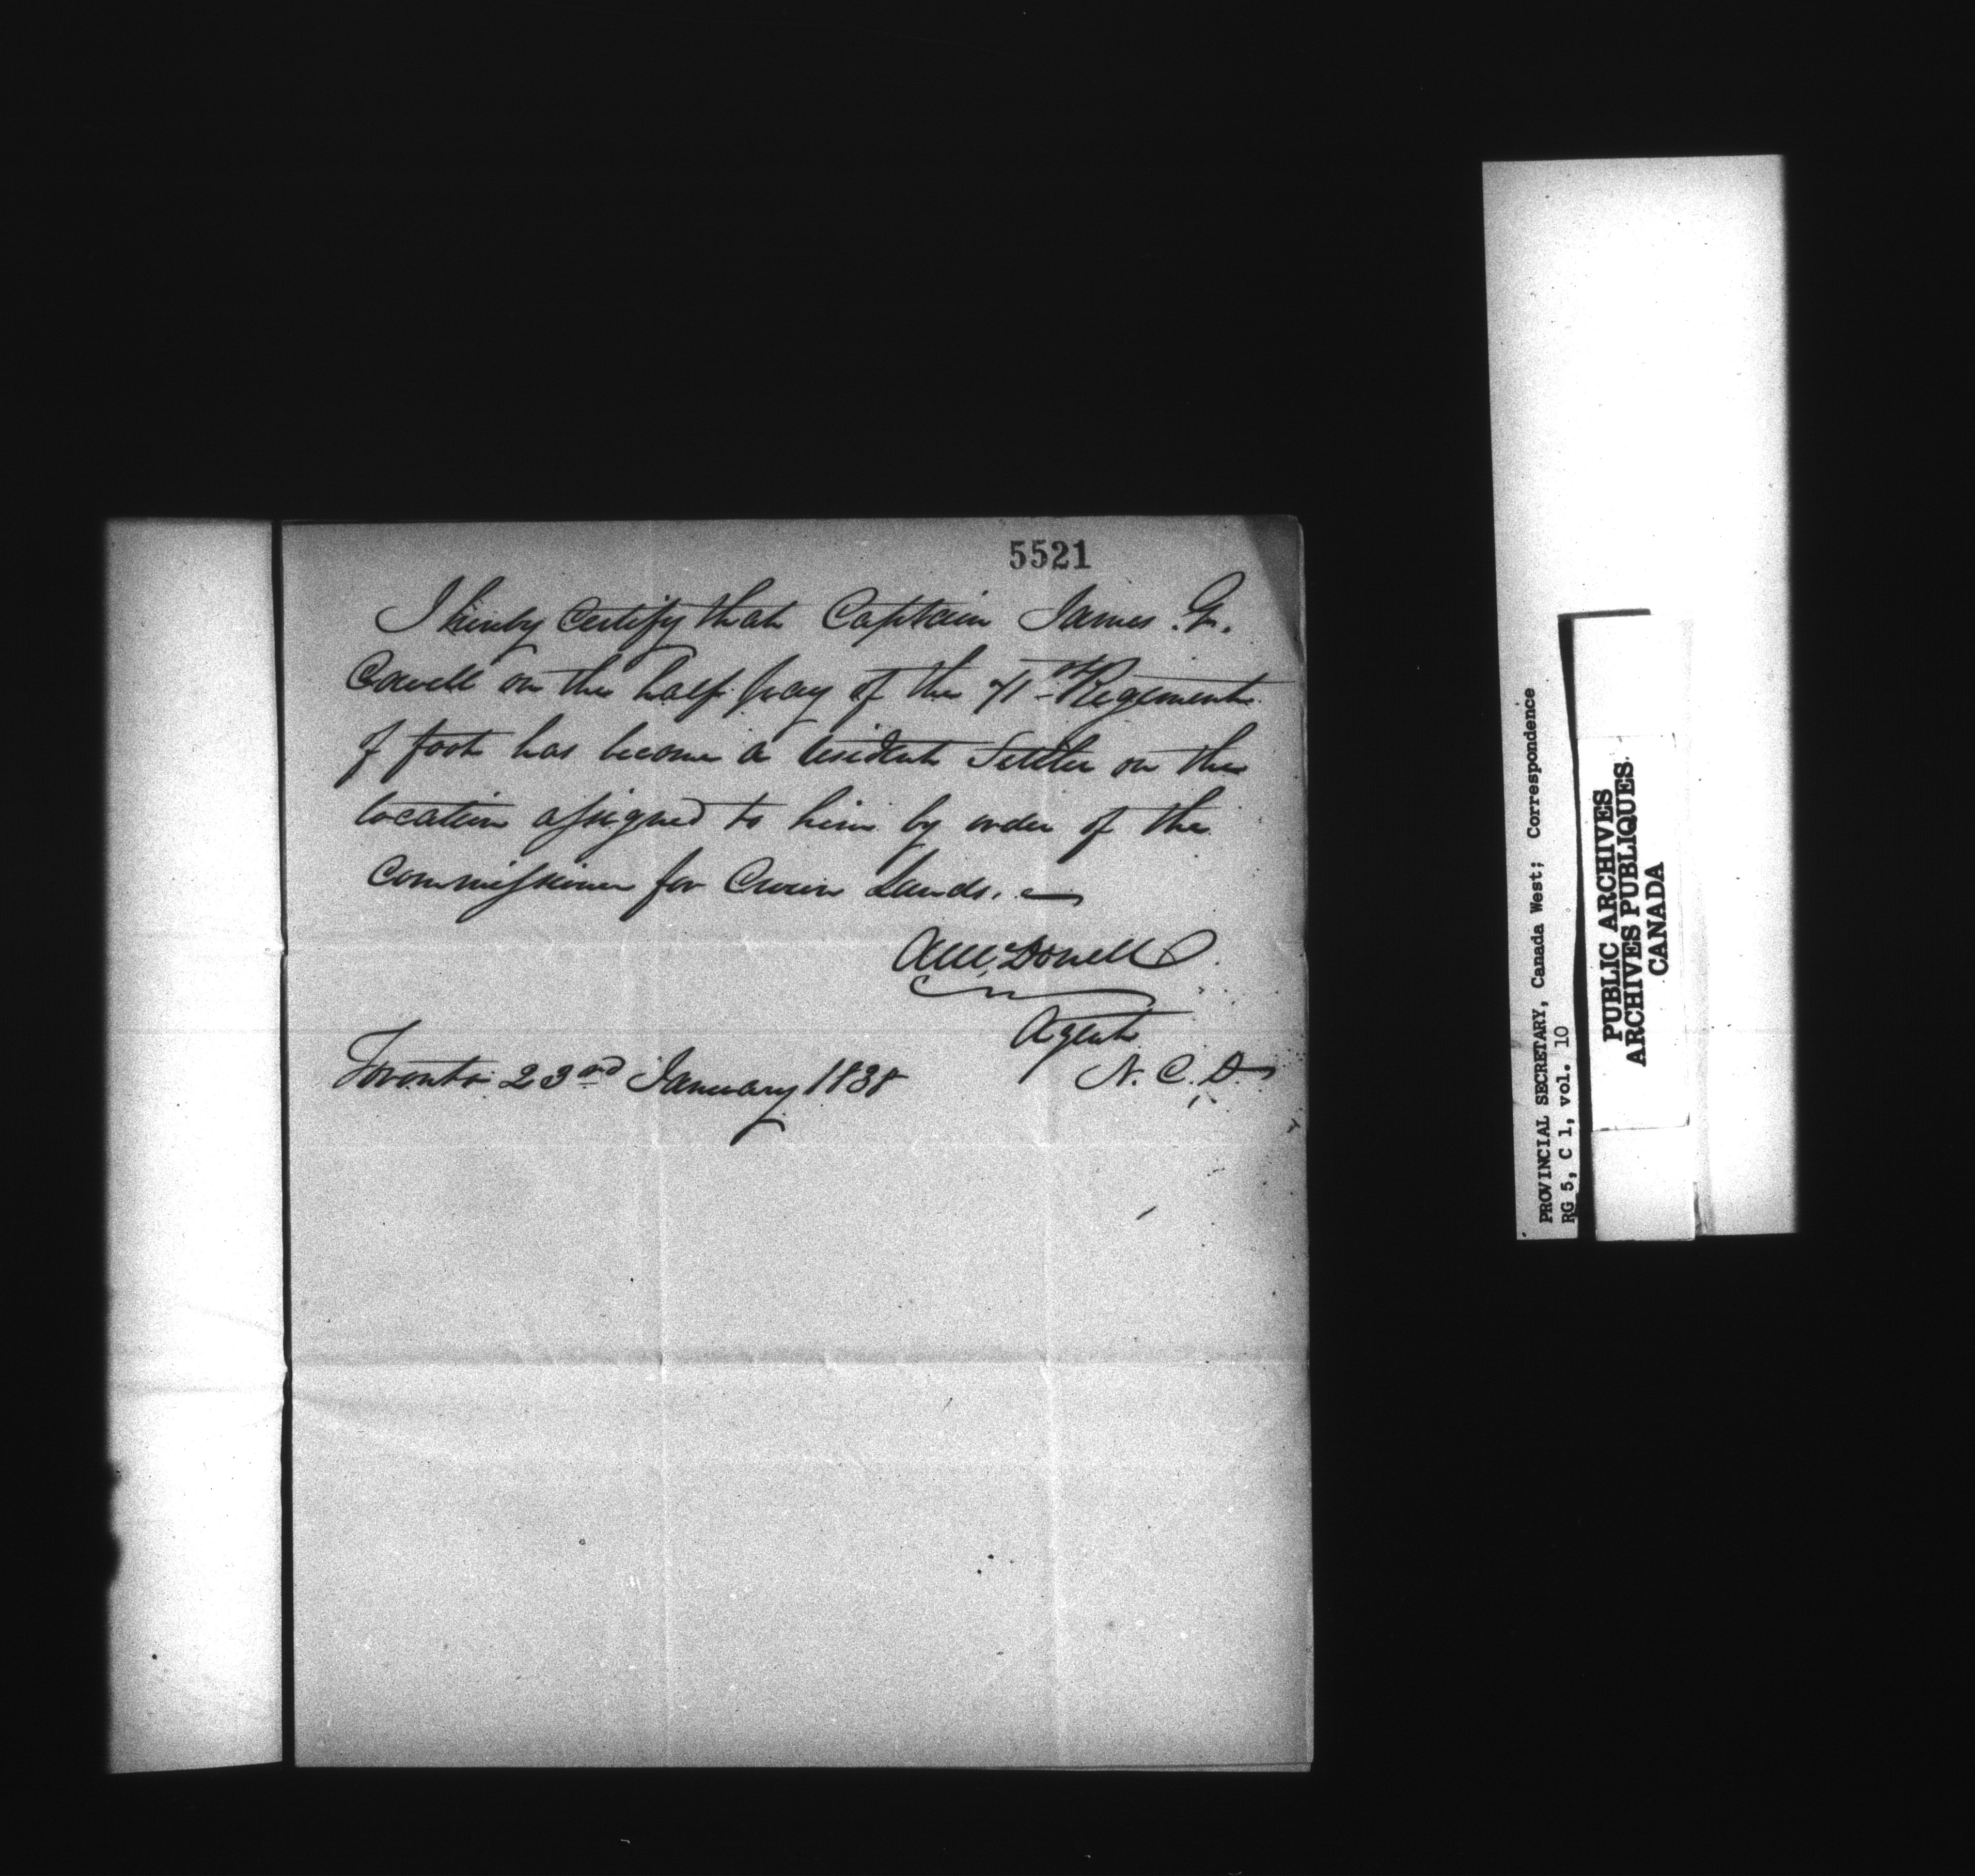 5521
I hereby Certify that Captain James. G.
Cowell on the half pay of the 71st Regiment
of foot has become a resident Settler on the
location assigned to him by order of the
Commissioner for Crown Lands. —
A McDonell
Agent
Toronto 23rd January 1838 N. C. D.
PROVINCIAL SECRETARY, Canada West; Correspondence
RG 5, C 1, vol. 10
PUBLIC ARCHIVES
ARCHIVES PUBLIQUES
CANADA